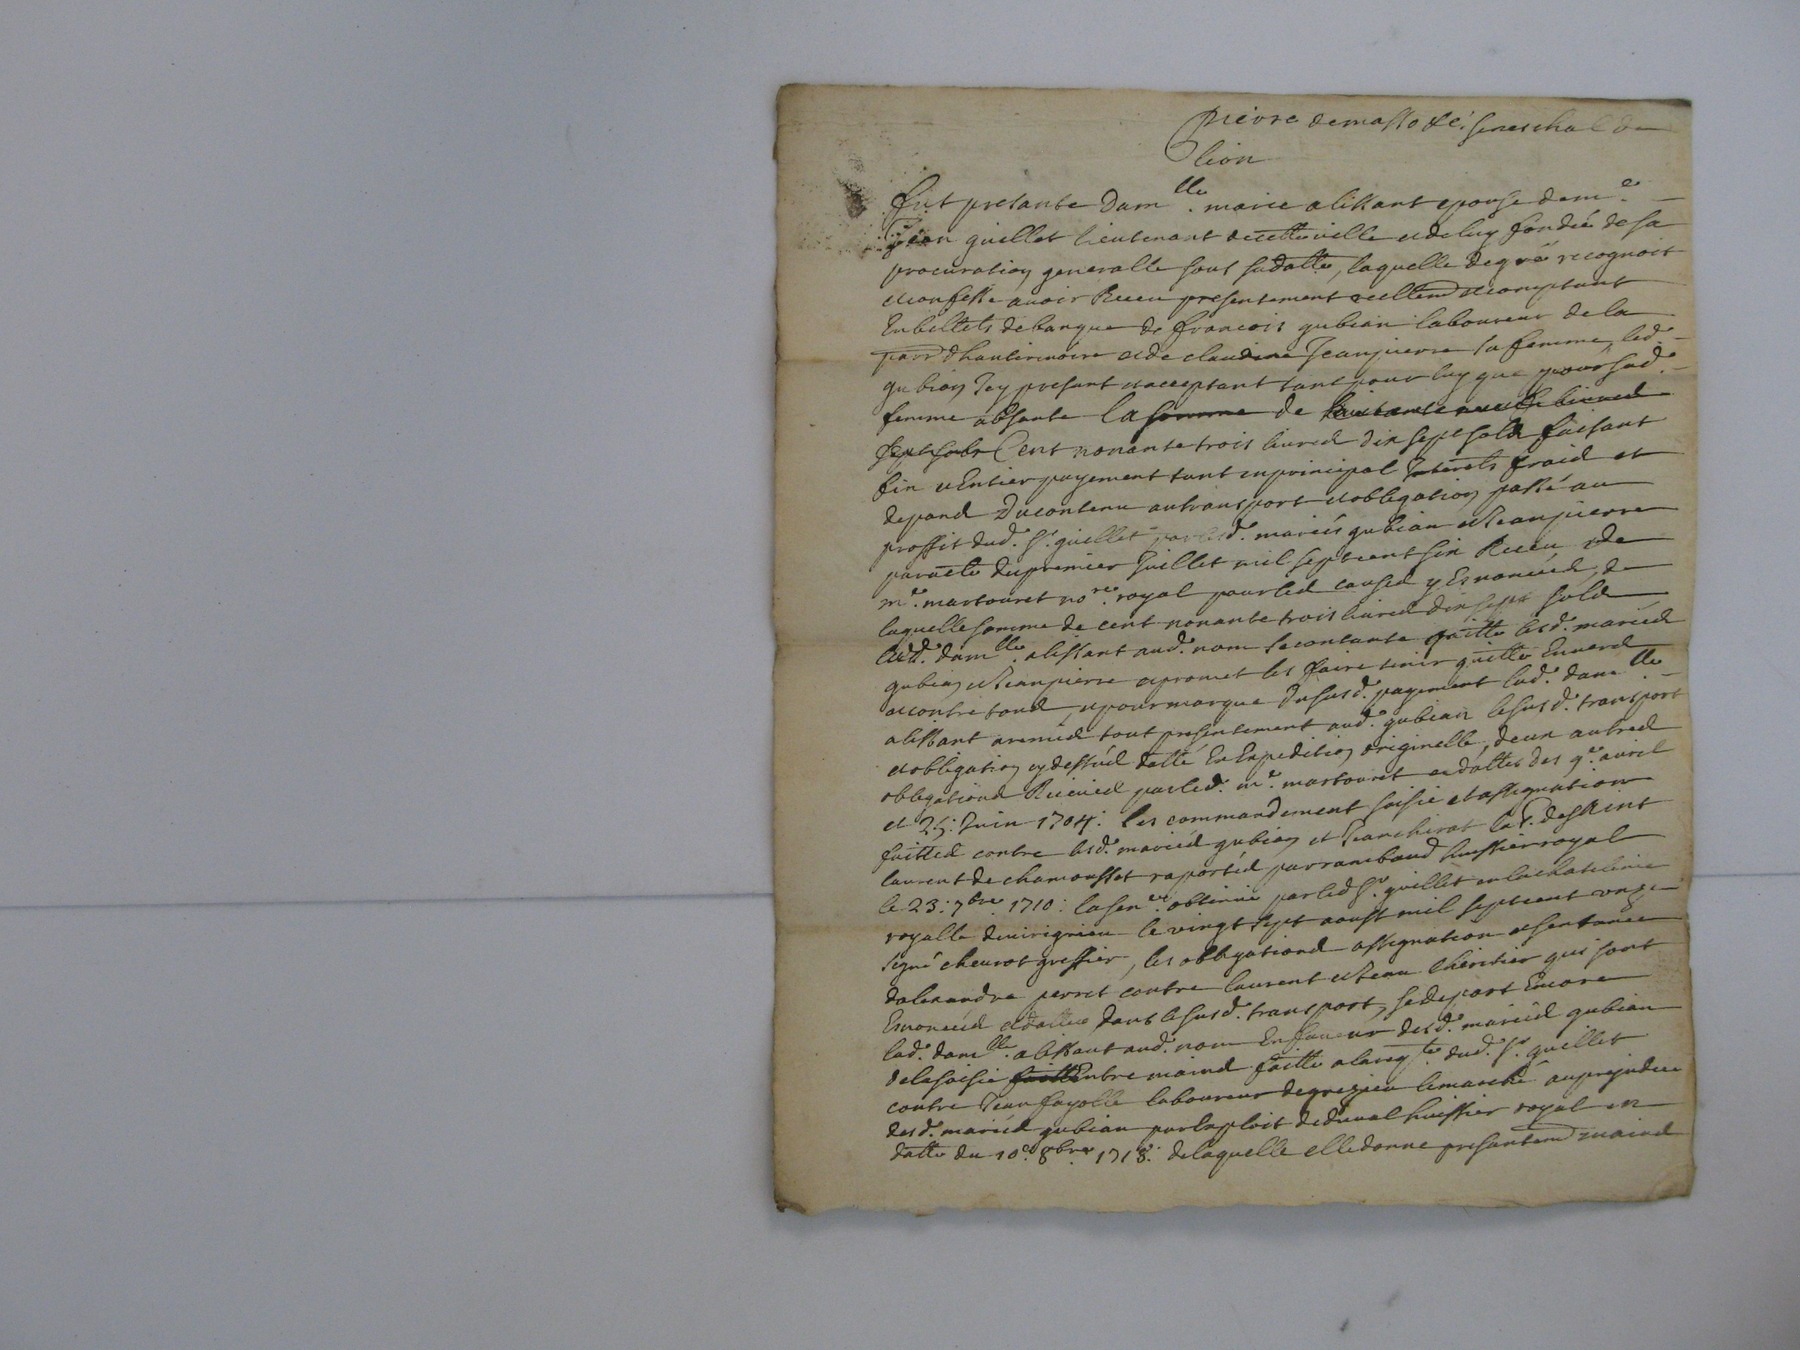 Pierre demasso &c. seneschal de
lion
fut presante dam.lle marie alissant epouse de m.e
jean guillet lieutenant de cette ville et de luy fondée de sa
procuration generalle sous sa datte, laquelle de gré recognoit
et confesse avoir Receu presentement reellem.t et comptant
En billets de banque de francois gubian laboureur de la
parr. d'hauterivoire et de claudine Jeanpierre sa femme, led.
gubian Icy presant et acceptant tant pour luy que pour sad.e
femme absante la somme de huitante neuf livres
sept sols Cent nonante trois livres dix sept sols faisant
fin et Entier payement tant en principal Interets fraid et
depand Du contenu au transport et obligation passé au
proffit dud. Sr. guillet par lesd. mariés gubian et Jeanpierre
par acte du premier Juillet mil sept cent six Receu de
m.e martouret no.re royal pour les causes y Esnoncéed, de
laquelle somme de cent nonante trois livres dix sept sold
lad. dam.lle alissant aud. nom se contante quitte lesd. mariéd
gubian et Jeanpierre et promet les faire tenir quitte Enverd
et contre toud, et pour marque du susd. payement lad. dam.lle
alissant a remid tout presentement aud. gubian le susd. transport
et obligation cy dessud datté En Expedition originelle, deux autred
obligationd Receued par led. m.e martouret en dattes des 9.e avril
et 25. Juin 1704. les commandement saisie et assignation
faitted contre lesd. mariéd gubian et Jean chirat la P. de St
laurent de chamousset raportéd par rambaud huissier royal
le 23. 7bre 1710: la sen.ce obtenue par led Sr. guillet en la chatelenie
royalle de virignieu le vingt sept aoust mil sept cent onze
signé chevrot greffier, les obligationd assignation et sentance
dalexandre perret contre laurent et Jean lheritier qui sont
Esnoncéd et dattés dans le susd. transport, se depart Encore
lad. dam.lle alissant aud. nom En faveur desd. mariéd gubian
de la saisie faitte Entre maind faitte a la req.te dud. Sr. guillet
contre Jean fayolle laboureur de grezieu le marché au prejudice
desd. mariéd gubian par Exploit de duval huissier royal en
datte du 10.e 8bre 1718. de laquelle elle donne presantem.t maind